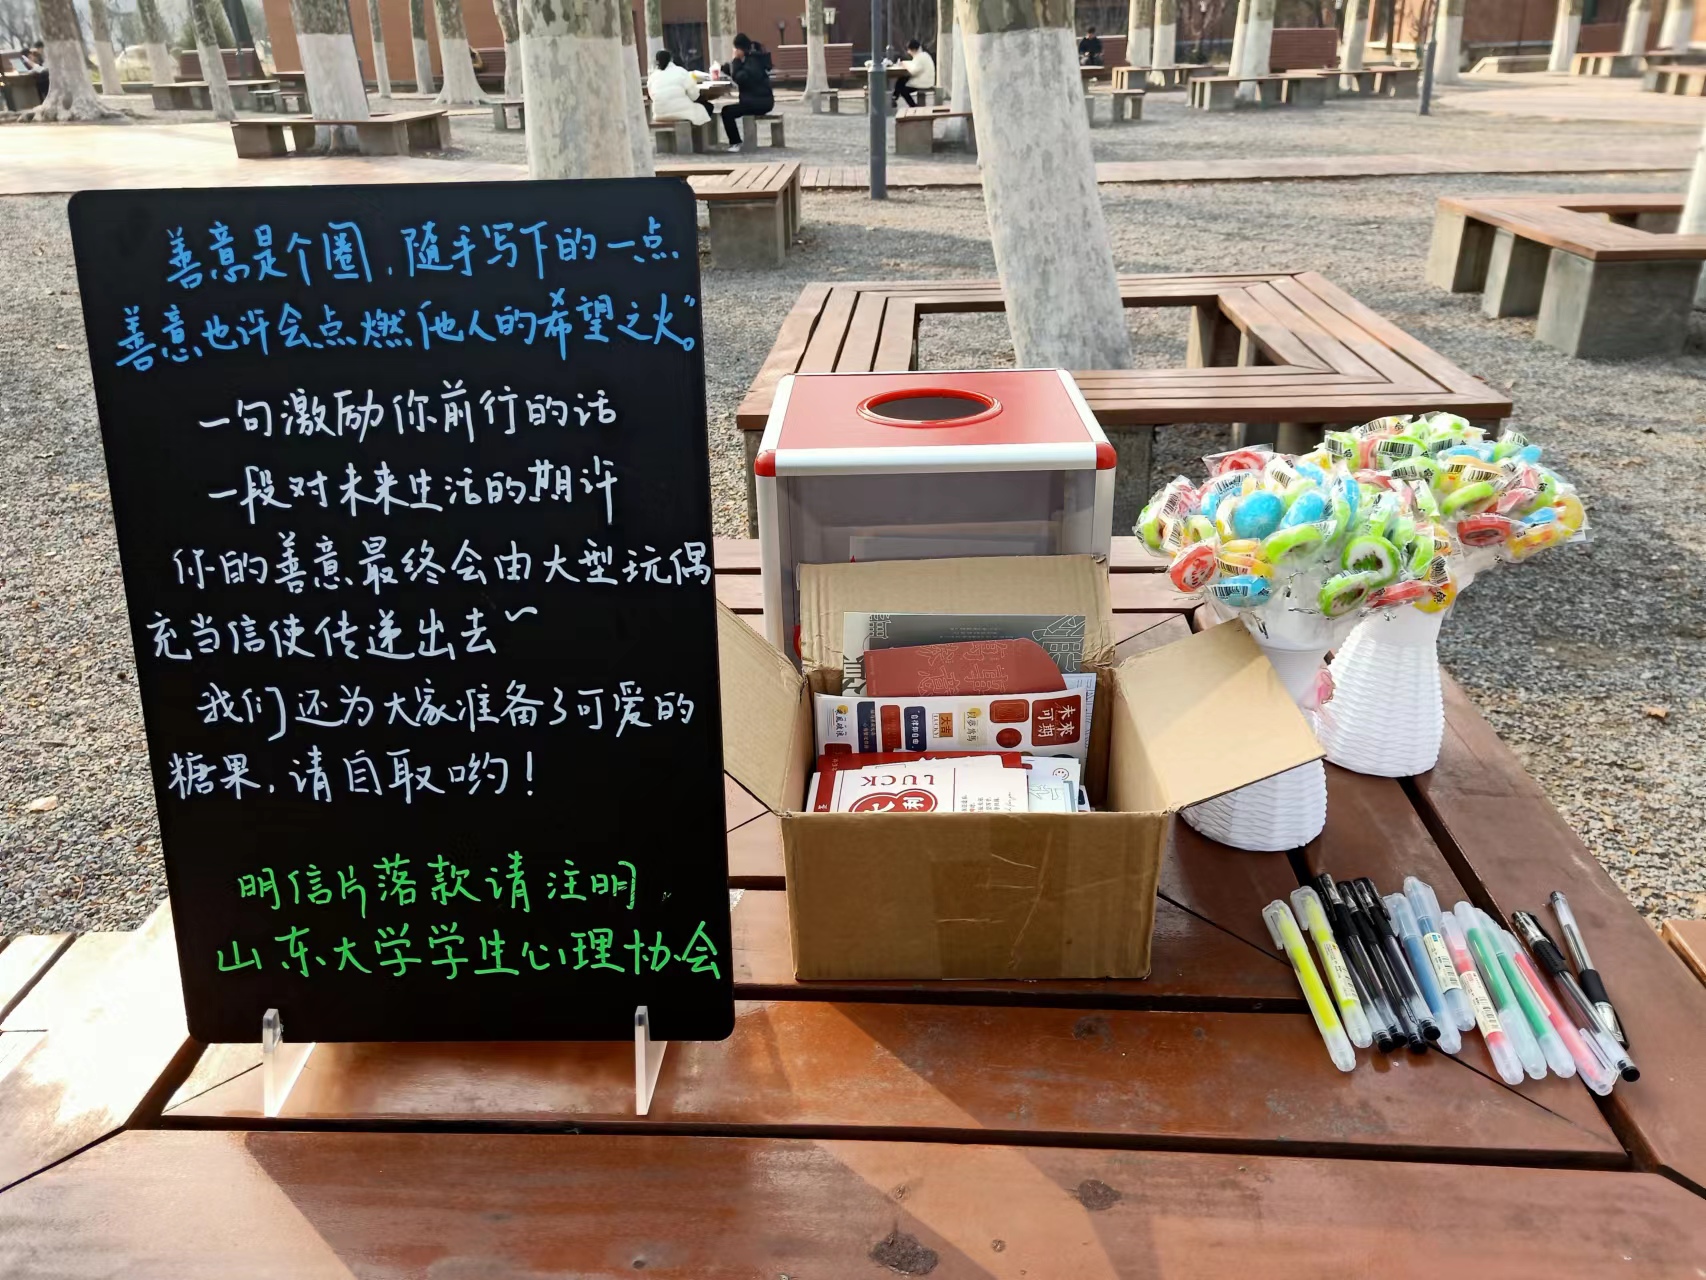 善意是个圈，随手写下的一点
善意也许会点燃他人的希望之火。”
一句激励你前行的话
一段对未来生活的期许
你的善意最终会由大型玩偶
充当信使传递出去~
我们还为大家准备了可爱的
糖果，请自取哟！
明信片落款请注明
山东大学学生心理协会
未来
可期
大吉
自律即自由
LUCK